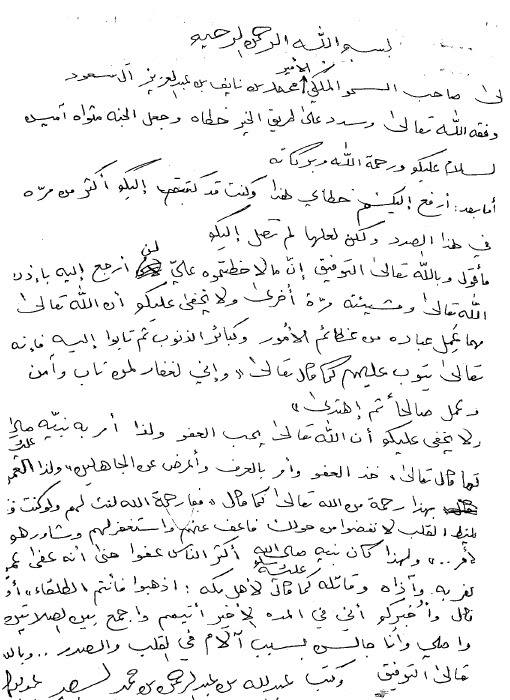 بسم الله الرحمن الرحيم
إلى صاحب السمو الملكي الأمير محمد بن نايف بن عبد العزيز آل سعود
وفقه الله تعالى وسدد على طريق الخير خطاه وجعل الجنه مثواه آمين
السلام عليكم ورحمة الله وبركاته
أما بعد: أرفع إليكم خطابي هذا وكنت قد كتبت إليكم أكثر من مره
في هذا الصدد ولكن لعلها لم تصل إليكم
فأقول وبالله تعالى التوفيق إن ما لاحظتموه عليّ لن أرجع إليه بإذن
الله تعالى ومشيئته مرة أخرى ولا يخفى عليكم أن الله تعالى
مهما عمل عباده من عظائم الأمور وكبائر الذنوب ثم تابوا إليه فإنه
تعالى يتوب عليهم كما قال تعالى « وإني لغفار لمن تاب وآمن
وعمل صالحاً ثم إهتدى »
ولا يخفى عليكم أن الله تعالى يحب العفو ولذا أمر به نبيّه صلى
عليه
كما قال تعالى « خذ العفو وأمر بالعرف وأعرض عن الجاهلين » ولذا
بهذا رحمة من الله تعالى كما قال « فبما رحمة من الله لنت لهم ولو كنت
غليظ القلب لانفضوا من حولك فاعف عنهم واستغفر لهم وشاورهم
الأمر .. » ولهذا كان نبيه صلى الله عليه أكثر الناس عفوا حتى أنه عفى
كفر به وآذاه وقاتله كما قال لأهل مكه : اذهبوا فأنتم الطلقاء
قال وأخبركم أني في المده الأخير أتيمم واجمع بين الصلاتين
واصلي وأنا جالس بسبب آلام في القلب والصدر .. وبالله
تعالى التوفيق وكتب عبد الله بن عبد الرحمن بن محمد السعد